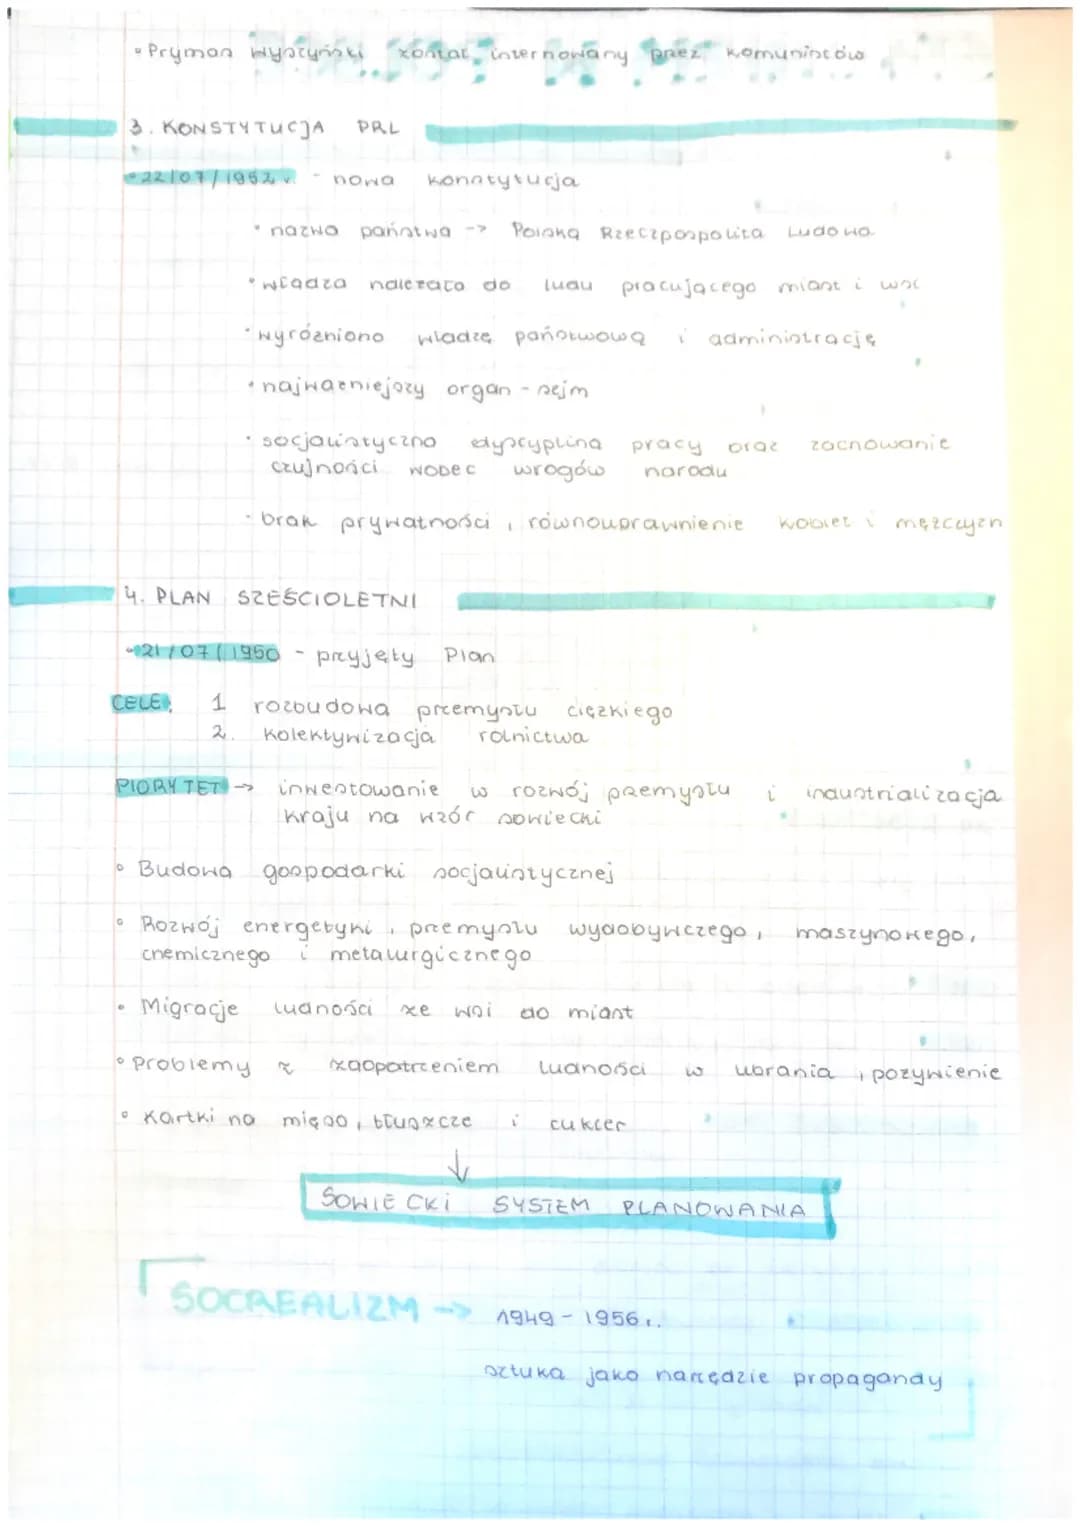 • Prymas Wyszyński został internowany przez komunistów
3. KONSTYTUCJA PRL
• 22/07/1952 r. - nowa konstytucja
• nazwa państwa -> Polska Rzeczpospolita Ludowa
• władza należała do ludu pracującego miast i wsi
• wyróżniono władzę państwową i administrację
• najważniejszy organ - sejm
• socjalistyczna dyscyplina pracy oraz zachowanie
czujności wobec wrogów narodu
• brak prywatności, równouprawnienie kobiet i mężczyzn
4. PLAN SZEŚCIOLETNI
• 21/07/1950 - przyjęty Plan
CELE: 1 rozbudowa przemysłu ciężkiego
2. kolektywizacja rolnictwa
PIORYTET -> inwestowanie w rozwój przemysłu i industrializacja
kraju na wzór sowiecki
• Budowa gospodarki socjalistycznej
• Rozwój energetyki, przemysłu wydobywczego, maszynowego,
chemicznego i metalurgicznego
• Migracje ludności ze wsi do miast
• Problemy z zaopatrzeniem ludności w ubrania, pożywienie
• Kartki na mięso, tłuszcze i cukier
↓
SOWIECKI SYSTEM PLANOWANIA
SOCREALIZM -> 1949 - 1956 r.
sztuka jako narzędzie propagandy